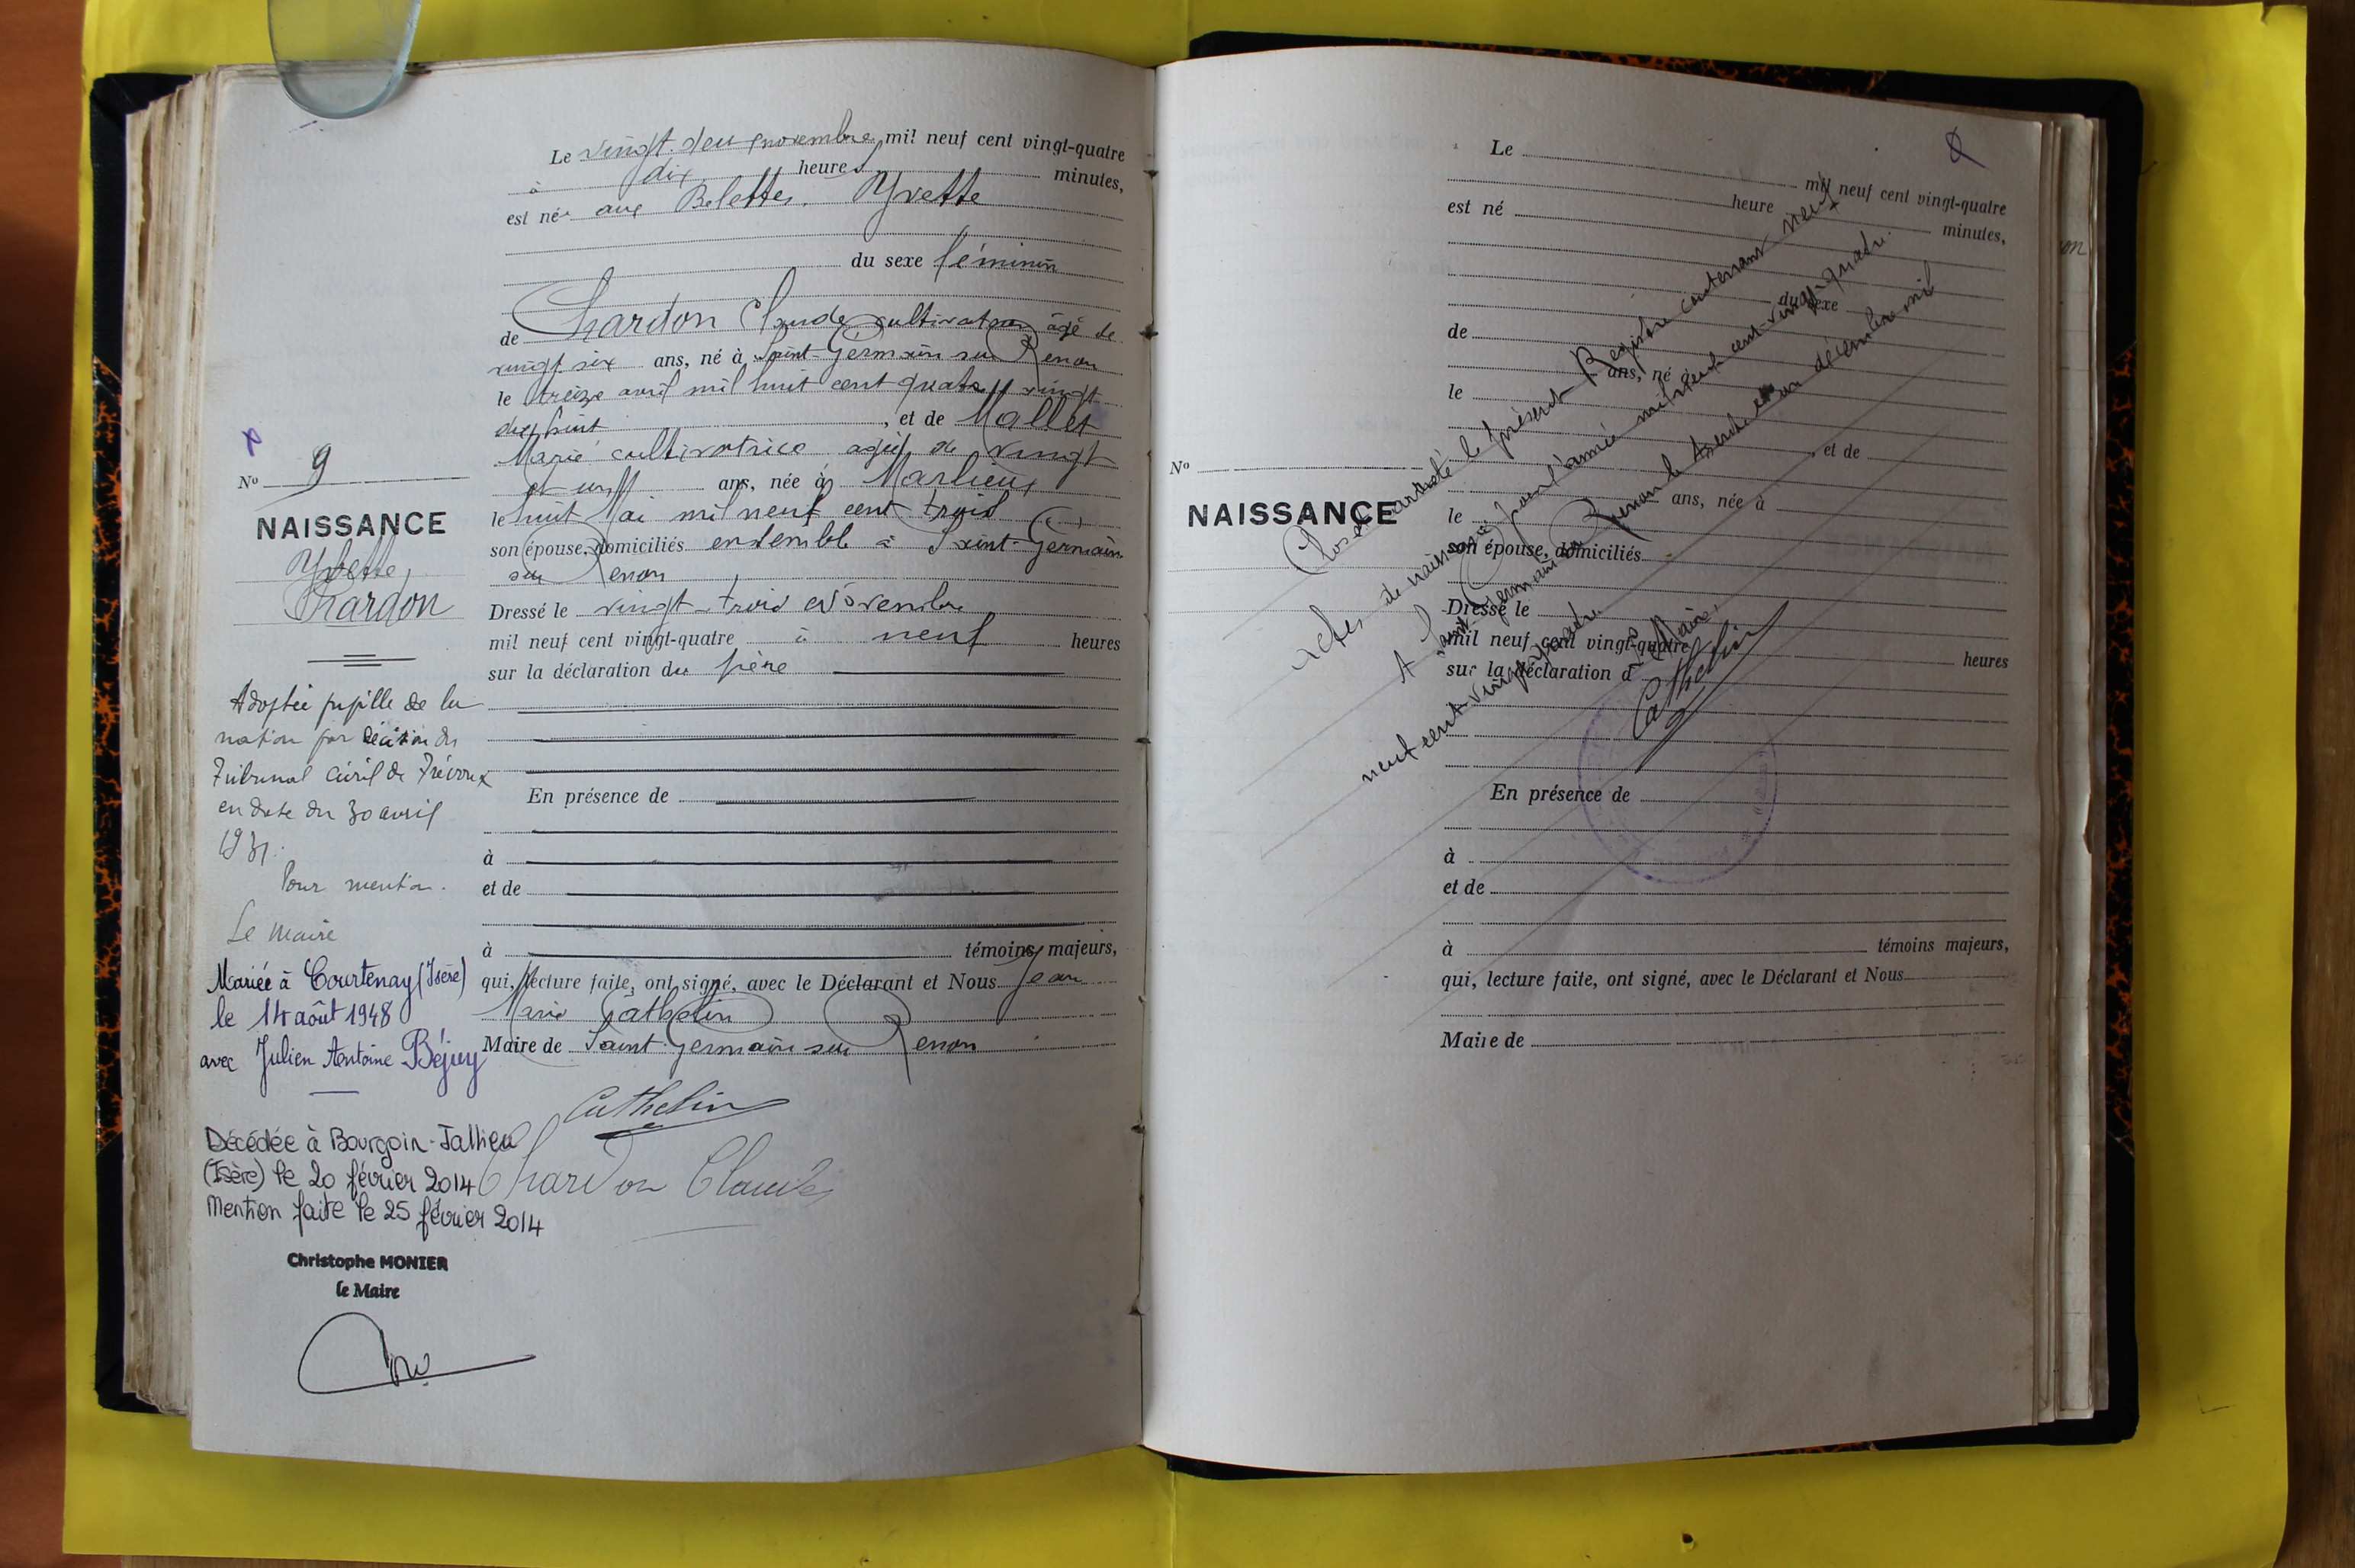 Le vingt deux novembre mil neuf cent vingt-quatre
à dix heures minutes,
est née aux Belettes, Yvette
du sexe féminin
de Chardon Claude cultivateur âgé de
vingt six ans, né à Saint-Germain sur Renon
le treize avril mil huit cent quatre vingt
dix huit, et de Mallet
Marie cultivatrice agée de vingt
et un ans, née à Marlieux
le huit Mai mil neuf cent trois
son épouse, domiciliés ensemble à Saint-Germain
sur Renon
Dressé le vingt-trois Novembre
mil neuf cent vingt-quatre à neuf heures
sur la déclaration du père
En présence de
à
et de
à témoins majeurs,
qui, lecture faite, ont signé, avec le Déclarant et Nous Jean
Marie Cathelin
Maire de Saint-Germain sur Renon
Cathelin
Chardon Claude
No 9
NAISSANCE
Yvette
Chardon
Adoptée pupille de la
nation par décision du
Tribunal civil de Trévoux
en date du 30 avril
1931.
Pour mention.
Le Maire
Mariée à Courtenay (Isère)
le 14 août 1948
avec Julien Antoine Béjuy
Décédée à Bourgoin-Jallieu
(Isère) le 20 février 2014
Mention faite le 25 février 2014
Christophe MONIER
le Maire
Le mil neuf cent vingt-quatre
heure minutes,
est né
du sexe
de
ans, né à
le
et de
No
NAISSANCE
ans, née à
le
son épouse, domiciliés
Dressé le
mil neuf cent vingt-quatre heures
sur la déclaration d
En présence de
à
et de
à témoins majeurs,
qui, lecture faite, ont signé, avec le Déclarant et Nous
Maire de
Clos et arrêté le présent Registre contenant neuf
actes de naissances pour l'année mil neuf cent vingt quatre.
A Saint Germain sur Renon le trente et un décembre mil
neuf cent vingt quatre
Le Maire,
Cathelin